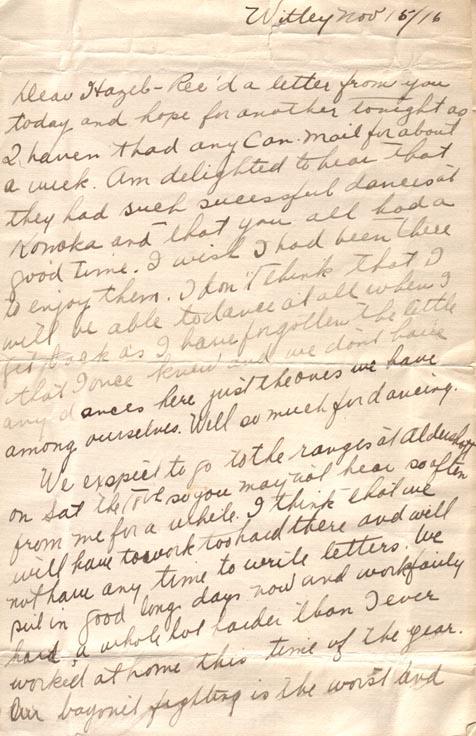 Witley Nov 15/16
Dear Hazel - Rec'd a letter from you
today and hope for another tonight as
I haven't had any Can. Mail for about
a week. Am delighted to hear that
they had such sucessful dances at
Konoka and that you all had a
good time. I wish I had been there
to enjoy them. I don't think that I
will be able to dance at all when I
get back as I have forgotten the little
that I once knew and we don't have
any dances here just the ones we have
among ourselves. Well so much for dancing.
We expect to go to the ranges at Aldershot
on Sat the so you may not hear so often
from me for a while. I think that we
will have to work too hard there and will
not have any time to write letters. We
put in good long days now and work fairly
hard a whole lot harder than I ever
worked at home this time of the year.
Our bayonet fighting is the worst and